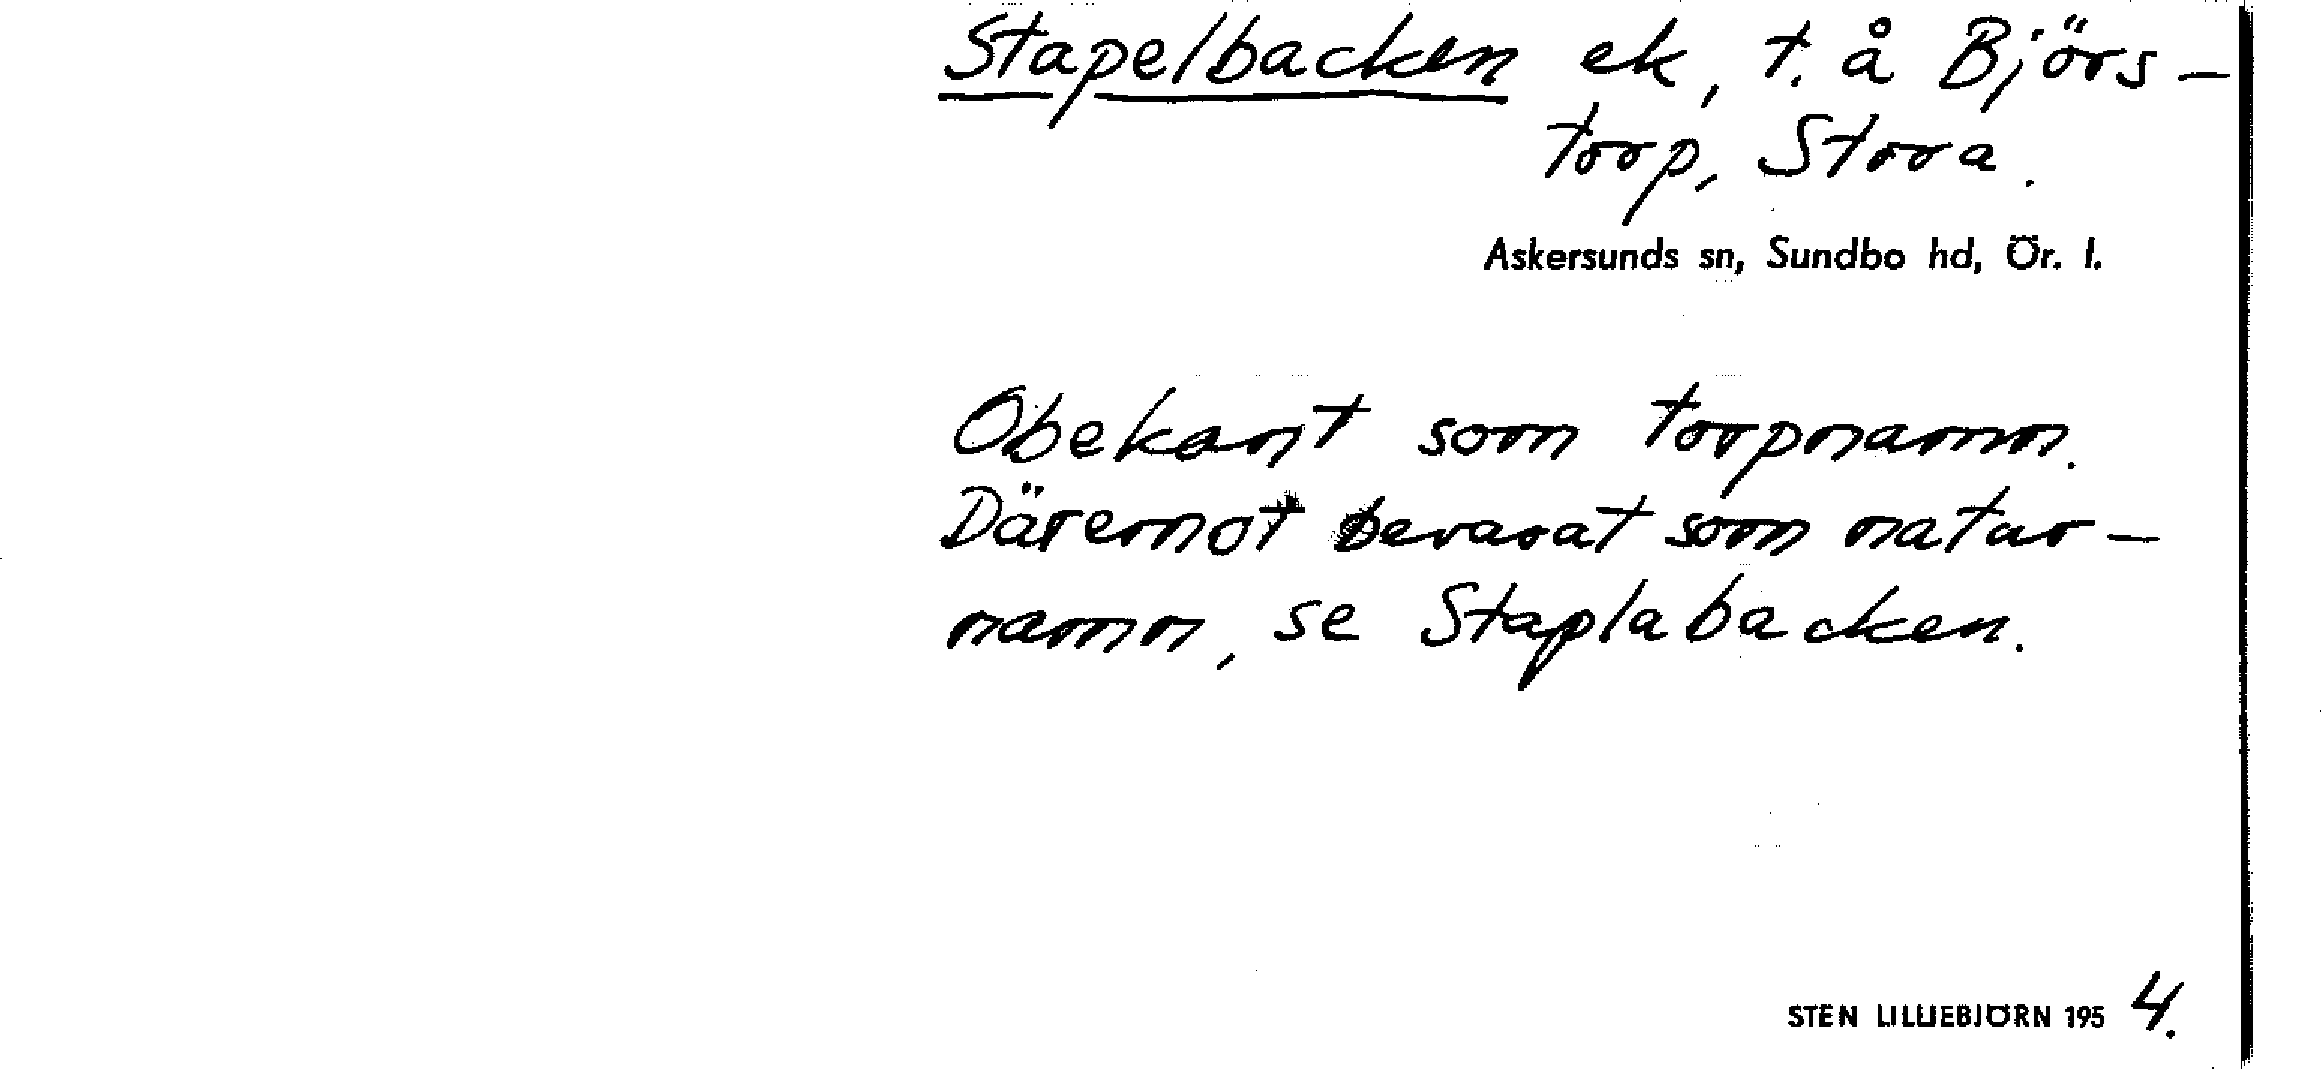 Stapelbacken ek, t. å Björs-
torp, Stora.
Askersunds sn, Sundbo hd, Ör. l.
Obekant som torpnamn.
Däremot bevarat som natur-
namn, se Staplabacken.
STEN LILLIEBJÖRN 1954.